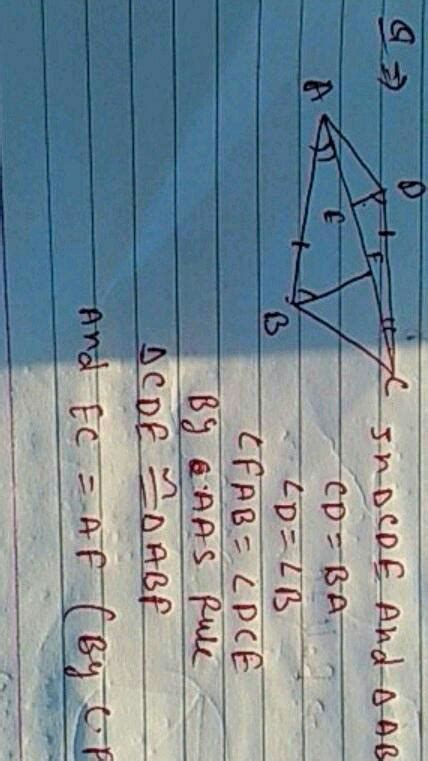 Q ⇒
A
D
E
F
B
C
In ΔCDE And ΔAB
CD = BA
∠D = ∠B
∠FAB = ∠DCE
By AAS Rule
ΔCDE ≅ ΔABF
And EC = AF (By C.P